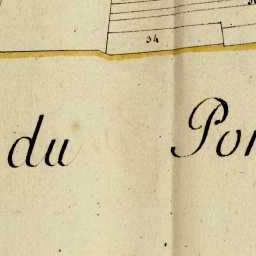 34
du Pon